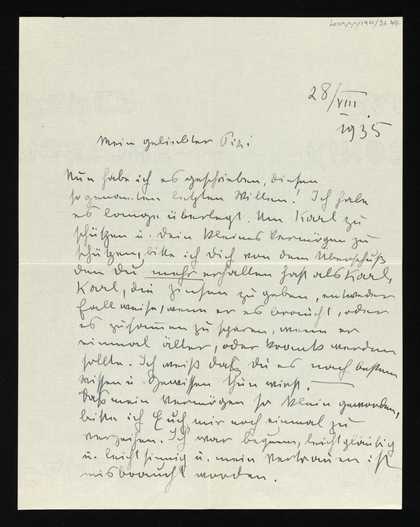 28/VIII.
1935
Mein geliebter
Nun habe ich es geschrieben, diesen
sogenannten letzten Willen! Ich habe
es lange überlegt. Um Karl zu
schützen u. Dein kleines Vermögen zu
schützen, bitte ich Dich von dem Überschuß
den du mehr erhalten hast als Karl,
Karl, die Zinsen zu geben, entweder
fallweise, wenn er es braucht, oder
es zusammen zu sparen, wenn er
einmal älter, oder krank werden
sollte. Ich weiß daß du es nach bestem
Wissen u. Gewissen thun wirst. —
Daß mein Vermögen so klein geworden,
bitte ich Euch mir noch einmal zu
verzeihen. Ich war bequem, leichtgläubig
u. leichtsinnig u. mein Vertrauen ist
misbraucht worden.